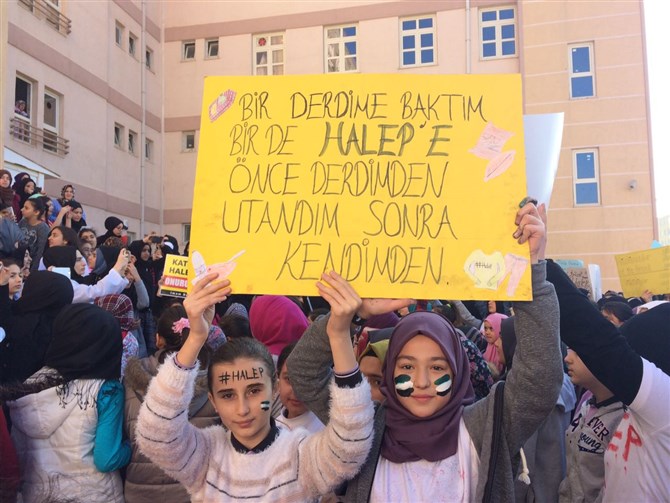 BİR DERDİME BAKTIM
BİR DE HALEP'E
ÖNCE DERDİMDEN
UTANDIM SONRA
KENDİMDEN.
#HALEP
KAT
HALEP